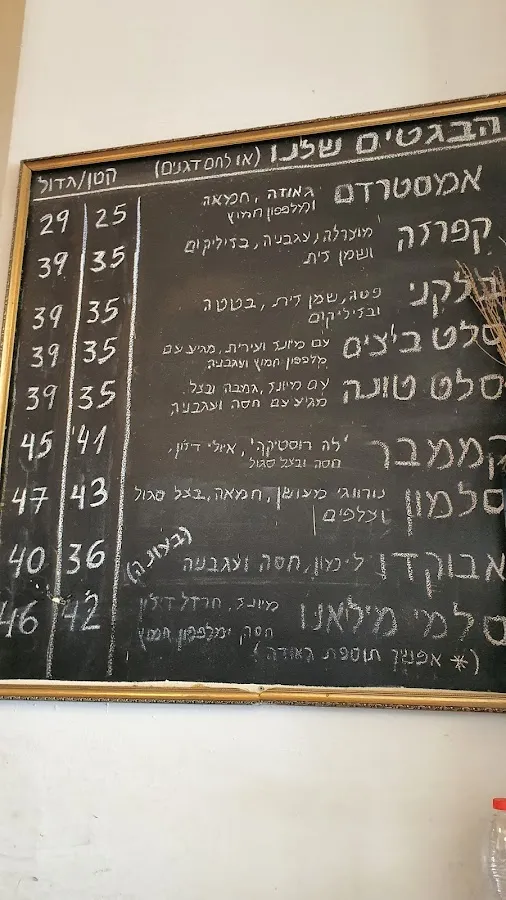 הבגטים שלנו (או לחם דגנים) קטן/גדול
אמסטרדם גאודה, חמאה 25 29
ומלפפון חמוץ
קפרזה מוצרלה, עגבניה, בזיליקום 35 39
ושמן זית
בלקני פטה, שמן זית, בטטה 35 39
ובזיליקום
סלט ביצים עם מיונז ועירית, מגיע עם 35 39
מלפפון חמוץ ועגבניה
סלט טונה עם מיונז, גמבה ובצל 35 39
מגיע עם חסה ועגבניה
קממבר 'לה רוסטיקה', איולי דילון, 41 45
חסה ובצל סגול
סלמון נורווגי מעושן, חמאה, בצל סגול 43 47
וצלפים
אבוקדו לימון, חסה ועגבניה (בעונה) 36 40
סלמי מילאנו מיונז, חרדל דיז'ון 42 46
חסה, ומלפפון חמוץ
(* אפשר תוספת גאודה)